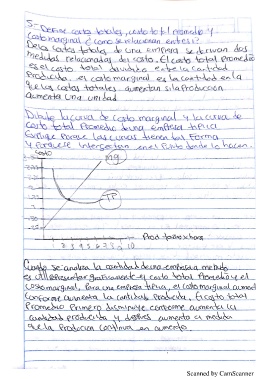 5- Define costo totales, costo total promedio y
Costo marginal ¿Como se relacionan entre si?
De los costos totales de una empresa se derivan dos
medidas relacionadas del costo. El costo total promedio
es el costo total dividido entre la cantidad
Producida. el costo marginal es la cantidad en la
que los costos totales aumentan si la Producción
aumenta una unidad
Dibuje la curva de costo marginal y la curva de
costo total Promedio de una empresa tipica
Explique Porque las curvas tienen las formas
y Porque se intersectan en el Punto donde lo hacen.
Costo
Mg
TP
Prod
1 2 3 4 5 6 7 8 9 10
Cuando se analiza la cantidad de una empresa
es útil representar graficamente el costo total Promedio y el
costo marginal, Para una empresa tipica, el costo marginal aumenta
conforme aumenta la cantidad Producida. El costo total
Promedio Primero disminuye conforme aumenta la
cantidad producida y despues aumenta a medida
que la Produccion continua en aumento
Scanned by CamScanner